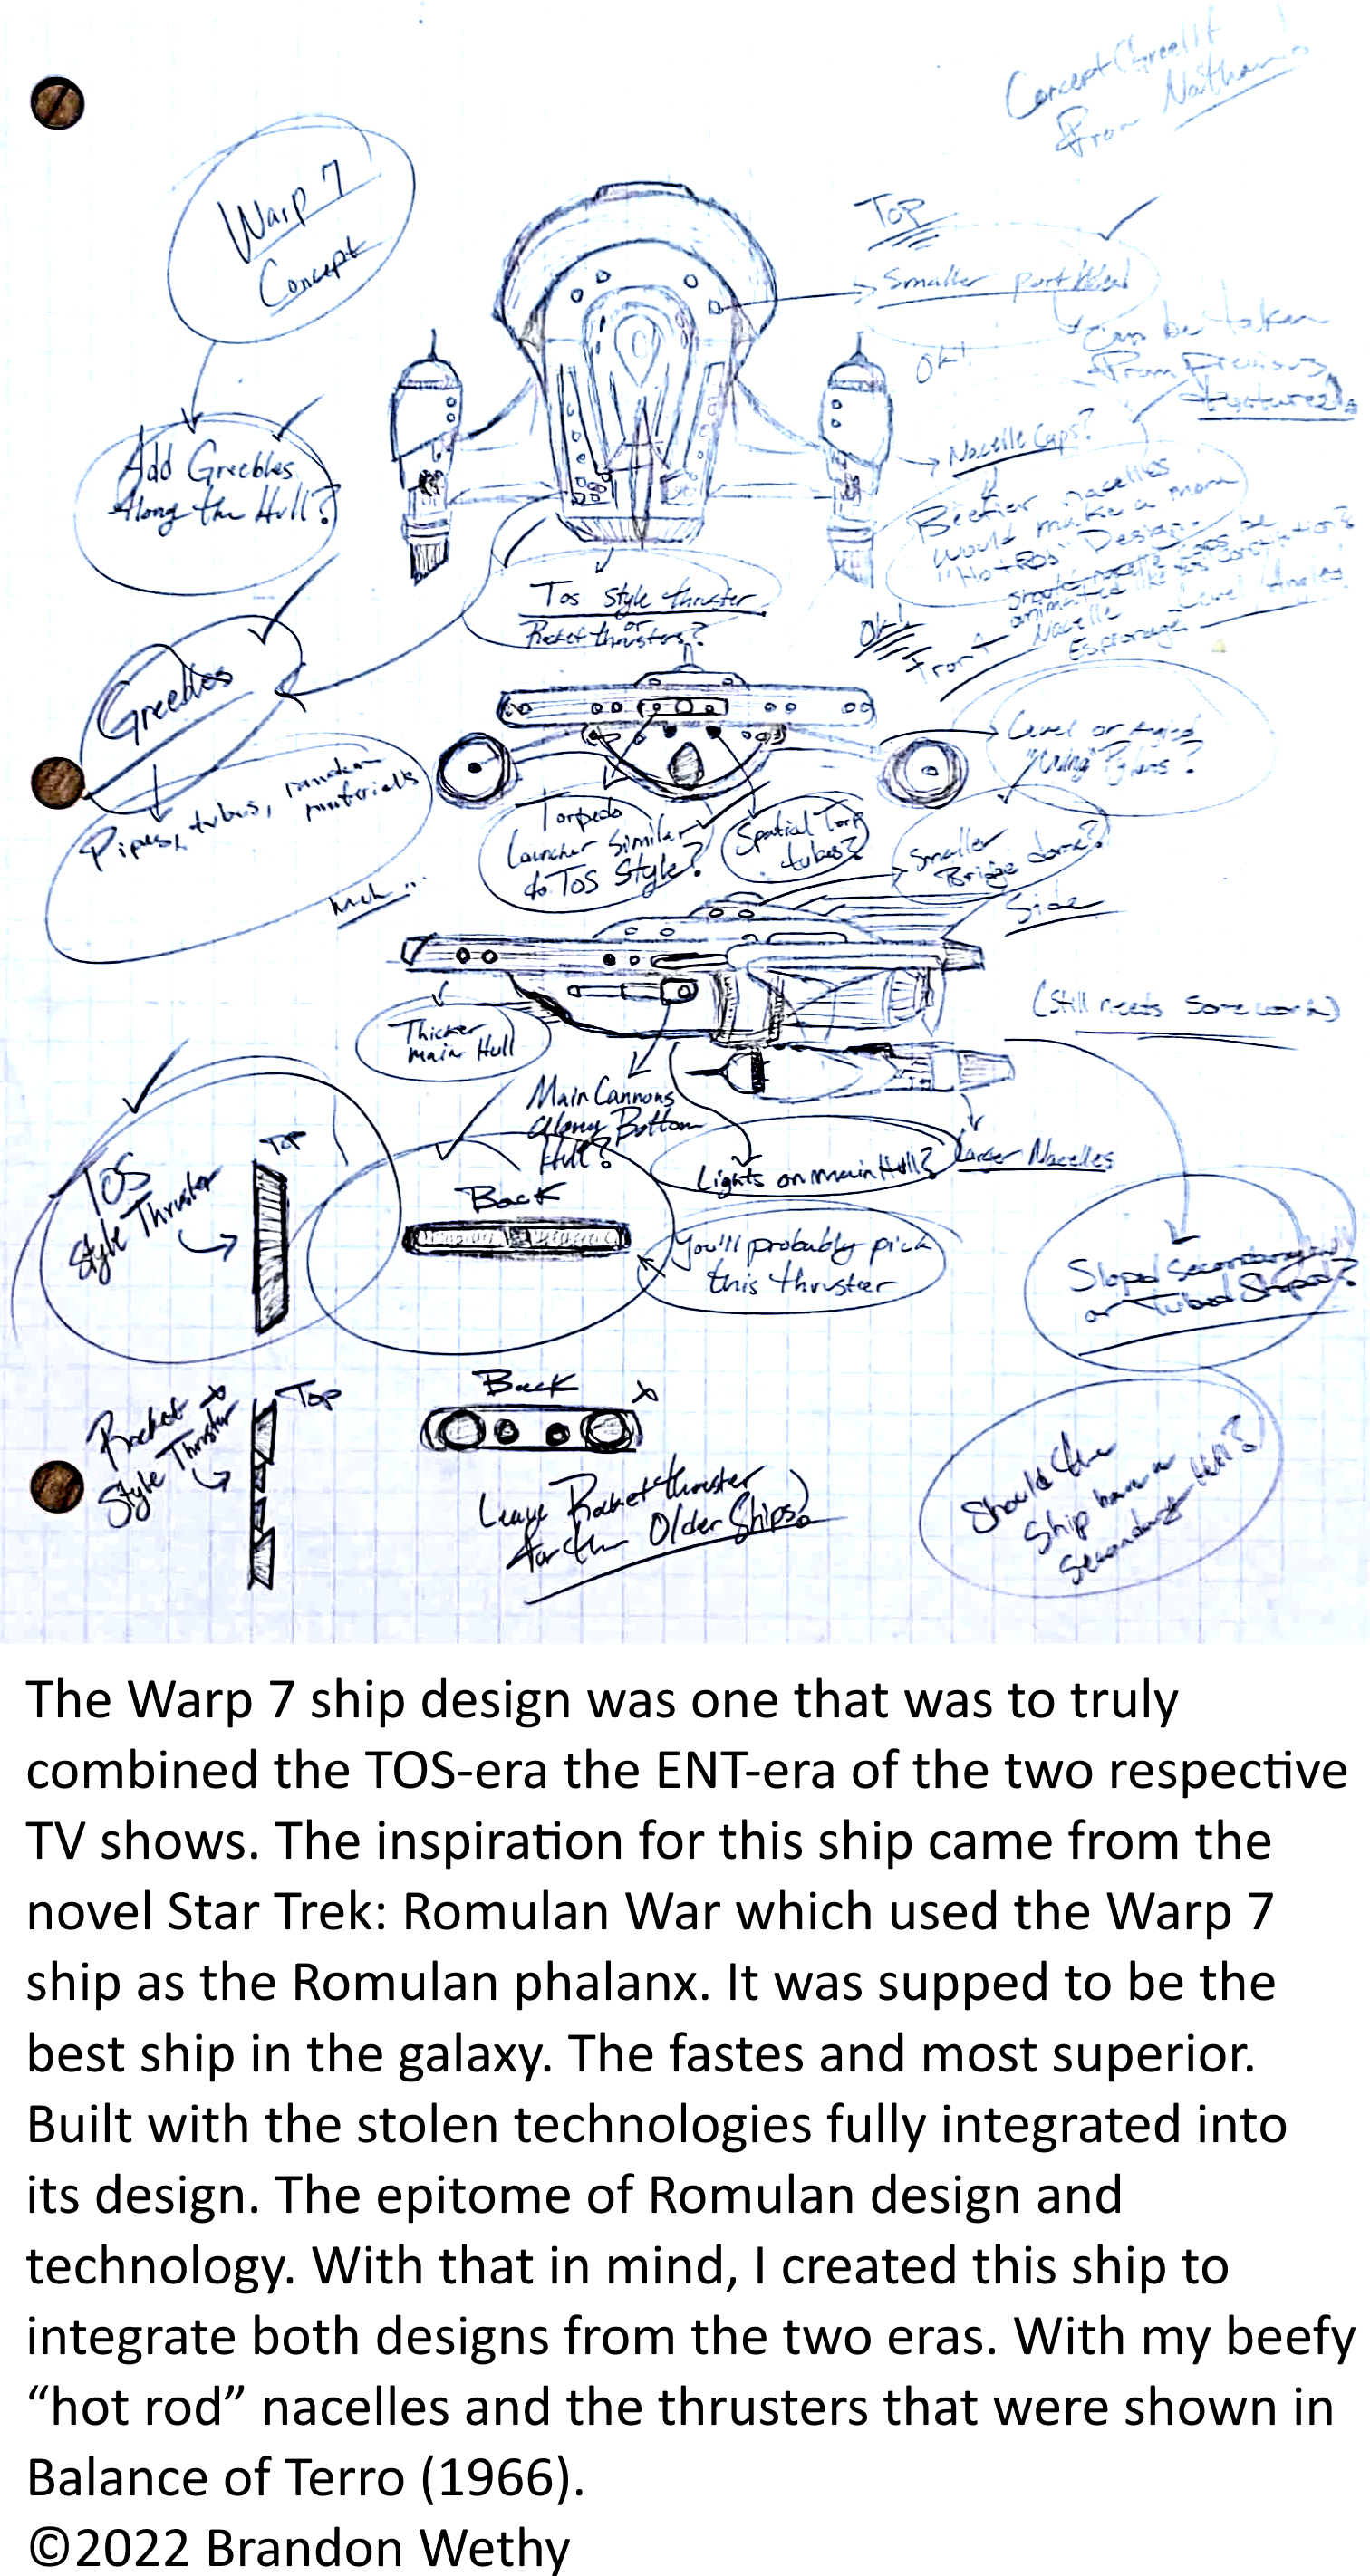 Concept Credit
From Nathan!
Warp 7
Concept
TOP
Smaller port
Can be taken
From Previous
OK!
Add Greebles
Along the Hull?
Nacelle Caps?
Beefier nacelles
would make a more
"Hot-Rod" Design
Should nacelle caps be
animated like TOS Constitution?
Nacelle
Level Angled
Espionage
TOS Style thruster
or
Rocket thrusters?
OK!
Front
Greebles
Pipes, tubes, random
materials
Level or Angled
"Wing" Pylons?
Torpedo
Launcher Similar
to TOS Style?
Spatial Torp
tubes?
Smaller
Bridge dome?
Side
Thicker
main Hull
(Still needs some work)
Main Cannons
Along Bottom
Hull?
Lights on main Hull?
Larger Nacelles
TOS
Style Thruster
Top
Back
You'll probably pick
this thruster
Sloped Secondary
or Tubed Shaped?
Rocket
Style Thruster
Top
Back
Leave Rocket thruster
for the Older Ships?
Should the
Ship have a
Secondary Hull?
The Warp 7 ship design was one that was to truly
combined the TOS-era the ENT-era of the two respective
TV shows. The inspiration for this ship came from the
novel Star Trek: Romulan War which used the Warp 7
ship as the Romulan phalanx. It was supped to be the
best ship in the galaxy. The fastes and most superior.
Built with the stolen technologies fully integrated into
its design. The epitome of Romulan design and
technology. With that in mind, I created this ship to
integrate both designs from the two eras. With my beefy
“hot rod” nacelles and the thrusters that were shown in
Balance of Terro (1966).
©2022 Brandon Wethy